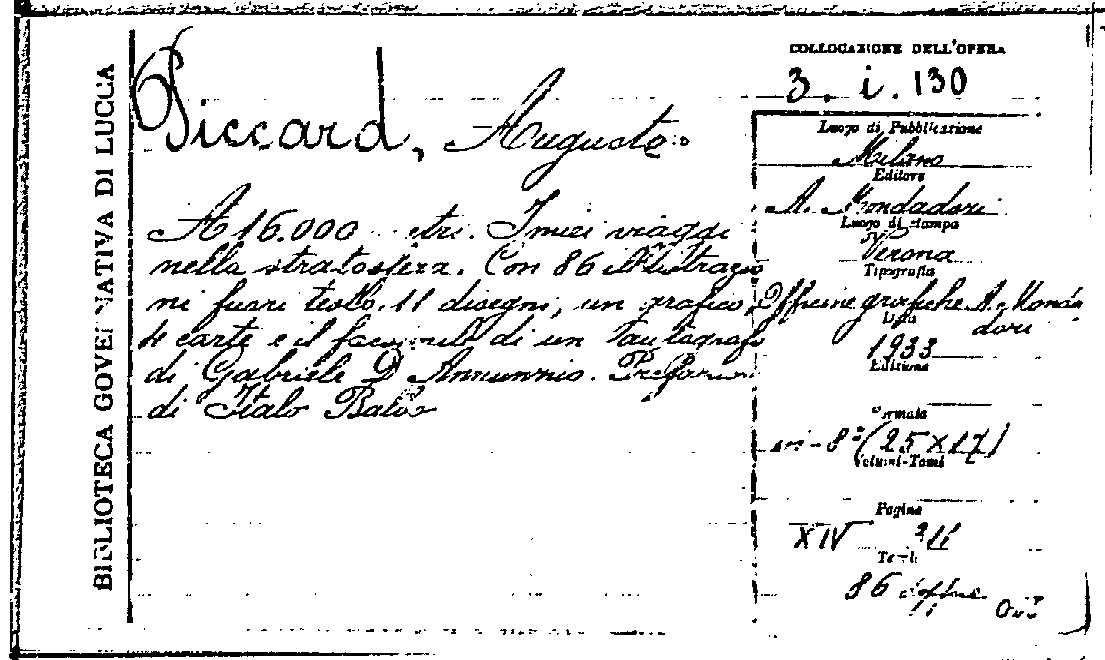 BIBLIOTECA GOVERNATIVA DI LUCCA
COLLOCAZIONE DELL'OPERA
3. i. 130
Piccard, Auguste.
Luogo di Pubblicazione
Milano
Editore
A. Mondadori
Luogo di stampa
Verona
Tipografia
Officine grafiche A. Mondadori
Data
1933
Edizione
Formato
in-8° (25x17)
Volumi-Tomi
Pagine
XIV
Tavole
86
A 16.000 metri. I miei viaggi
nella stratosfera. Con 86 illustrazio
ni fuori testo. 11 disegni, un grafico,
4 carte e il facsimile di un autografo
di Gabriele D'Annunzio. Prefazione
di Italo Balbo